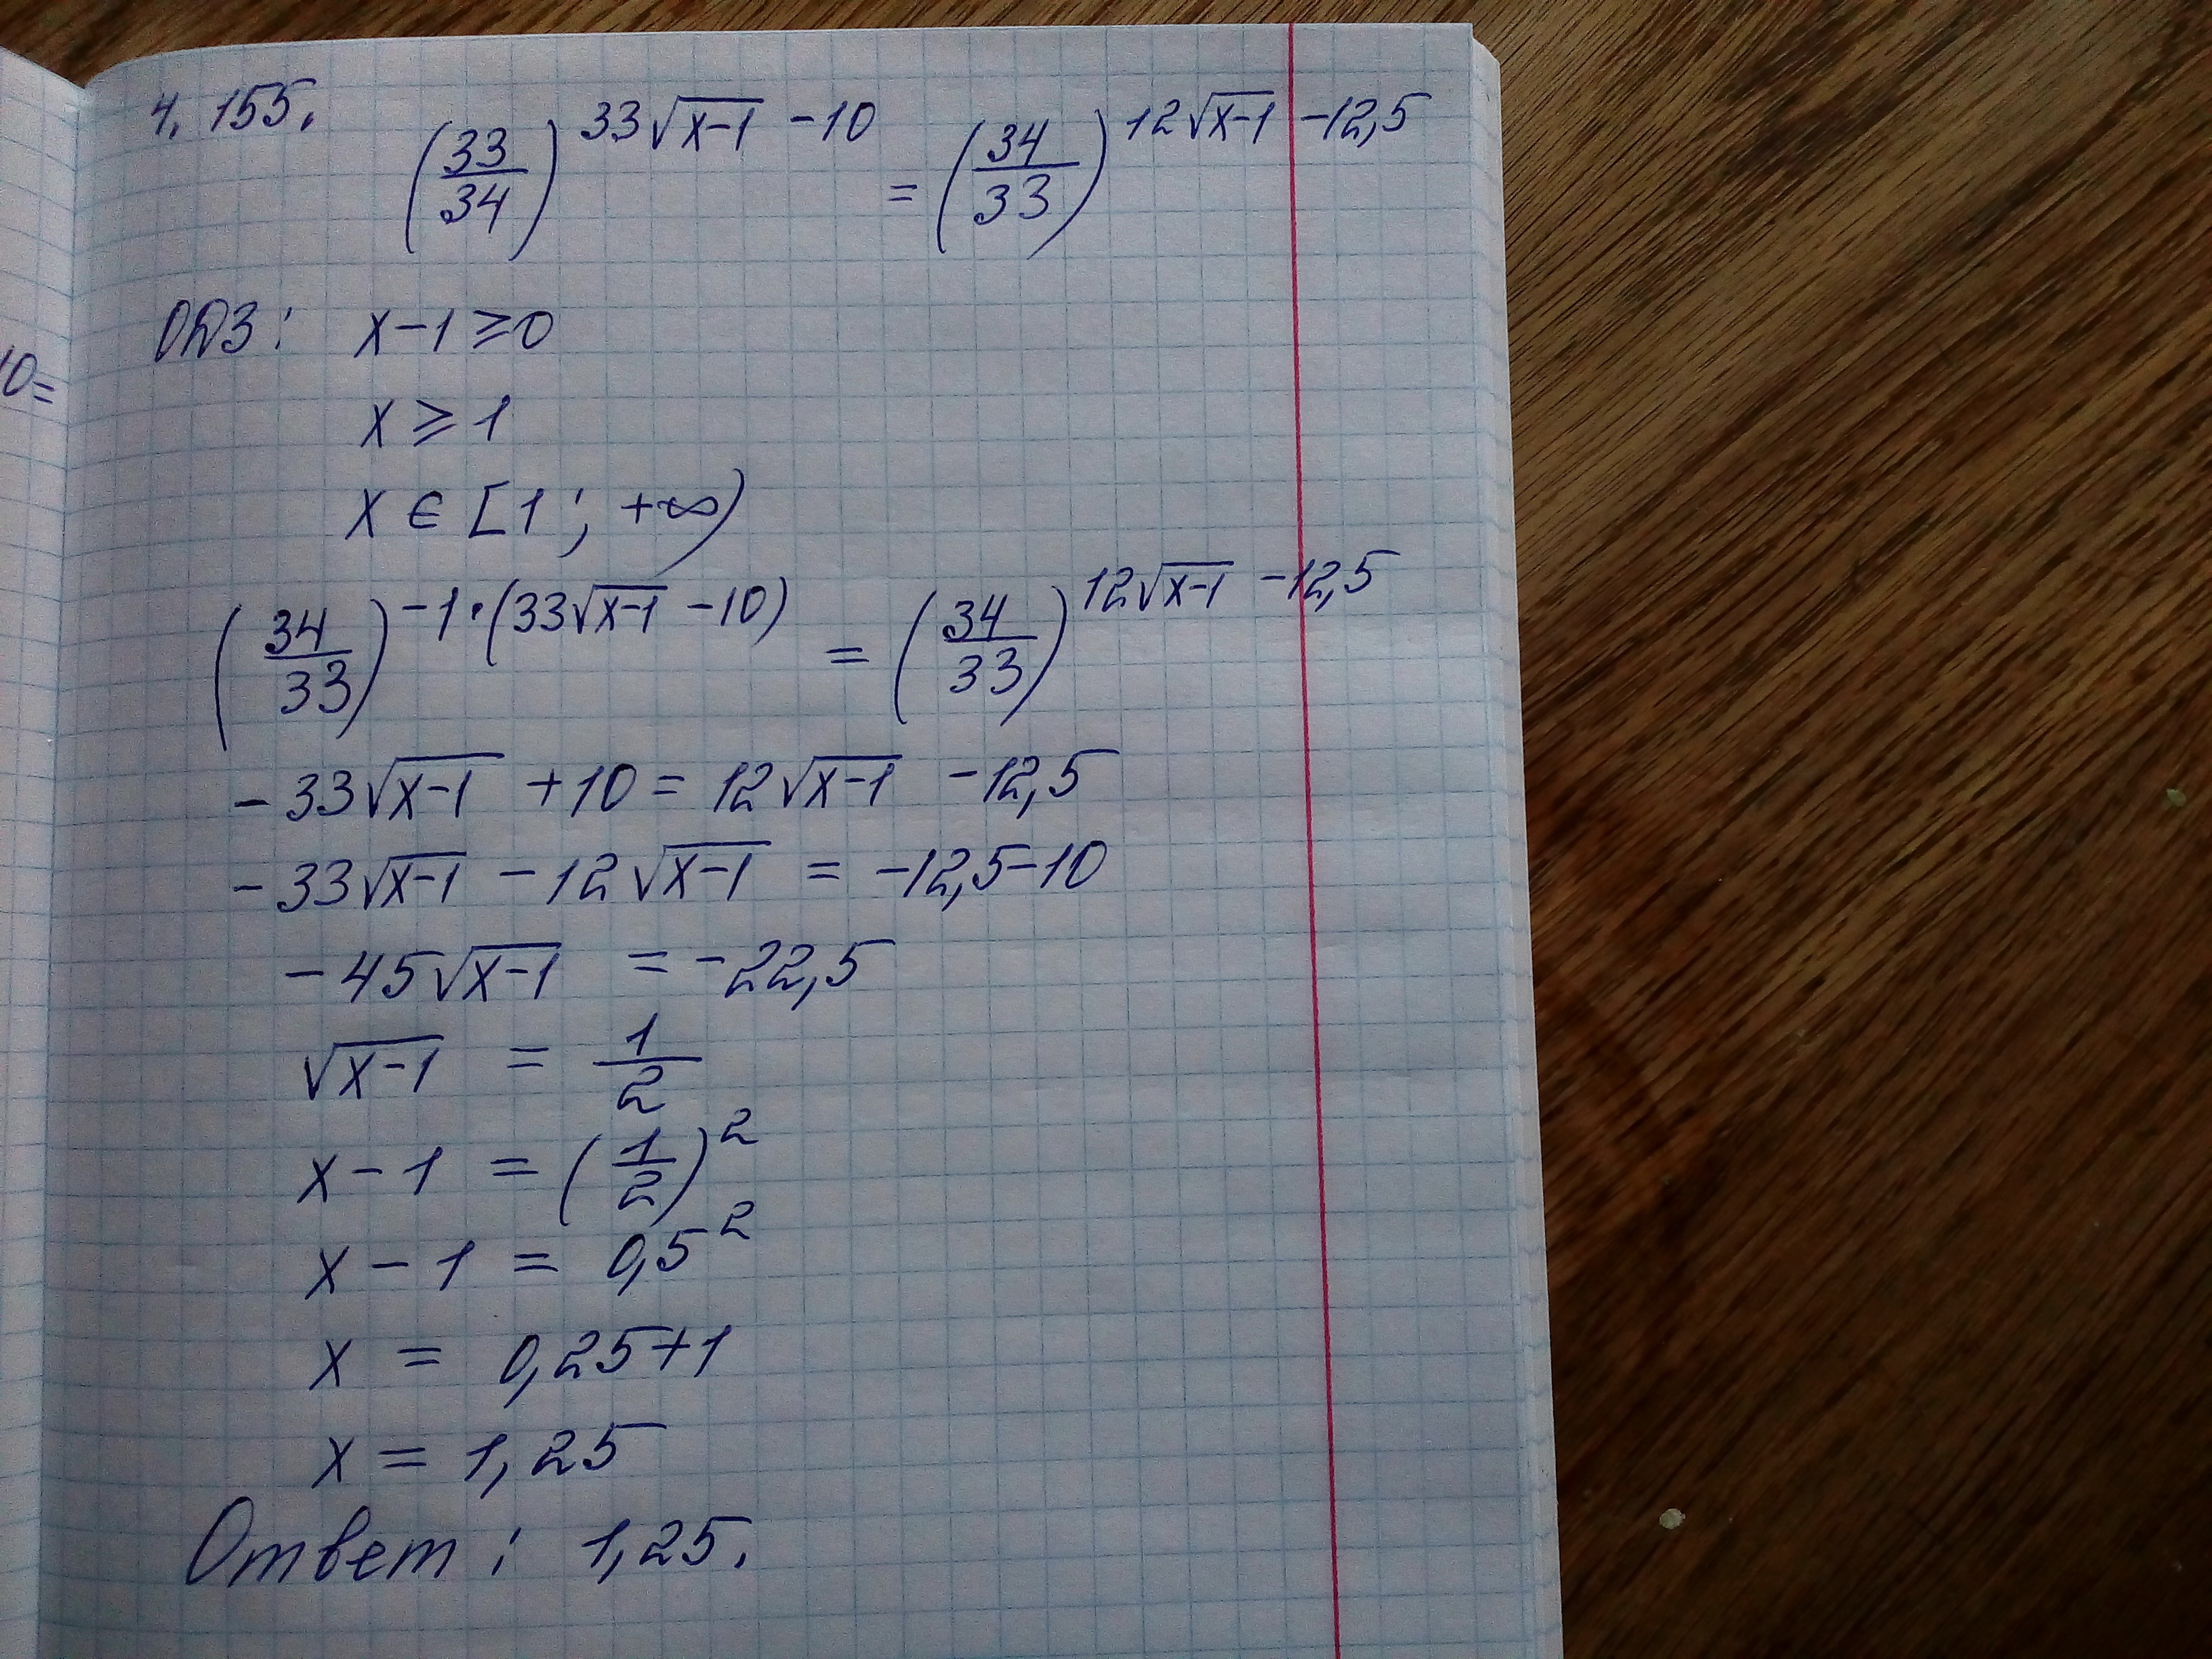 4.155. (33/34)^(33√(x-1) -10) = (34/33)^(12√(x-1) -12,5)
ОДЗ: x-1⩾0
10=
x⩾1
x∈[1; +∞)
(34/33)^(-1·(33√(x-1) -10)) = (34/33)^(12√(x-1) -12,5)
-33√(x-1) +10= 12√(x-1) -12,5
-33√(x-1) -12√(x-1) = -12,5-10
-45√(x-1) = -22,5
√(x-1) = 1/2
x-1 = (1/2)²
x-1 = 0,5²
x = 0,25+1
x = 1,25
Ответ: 1,25.